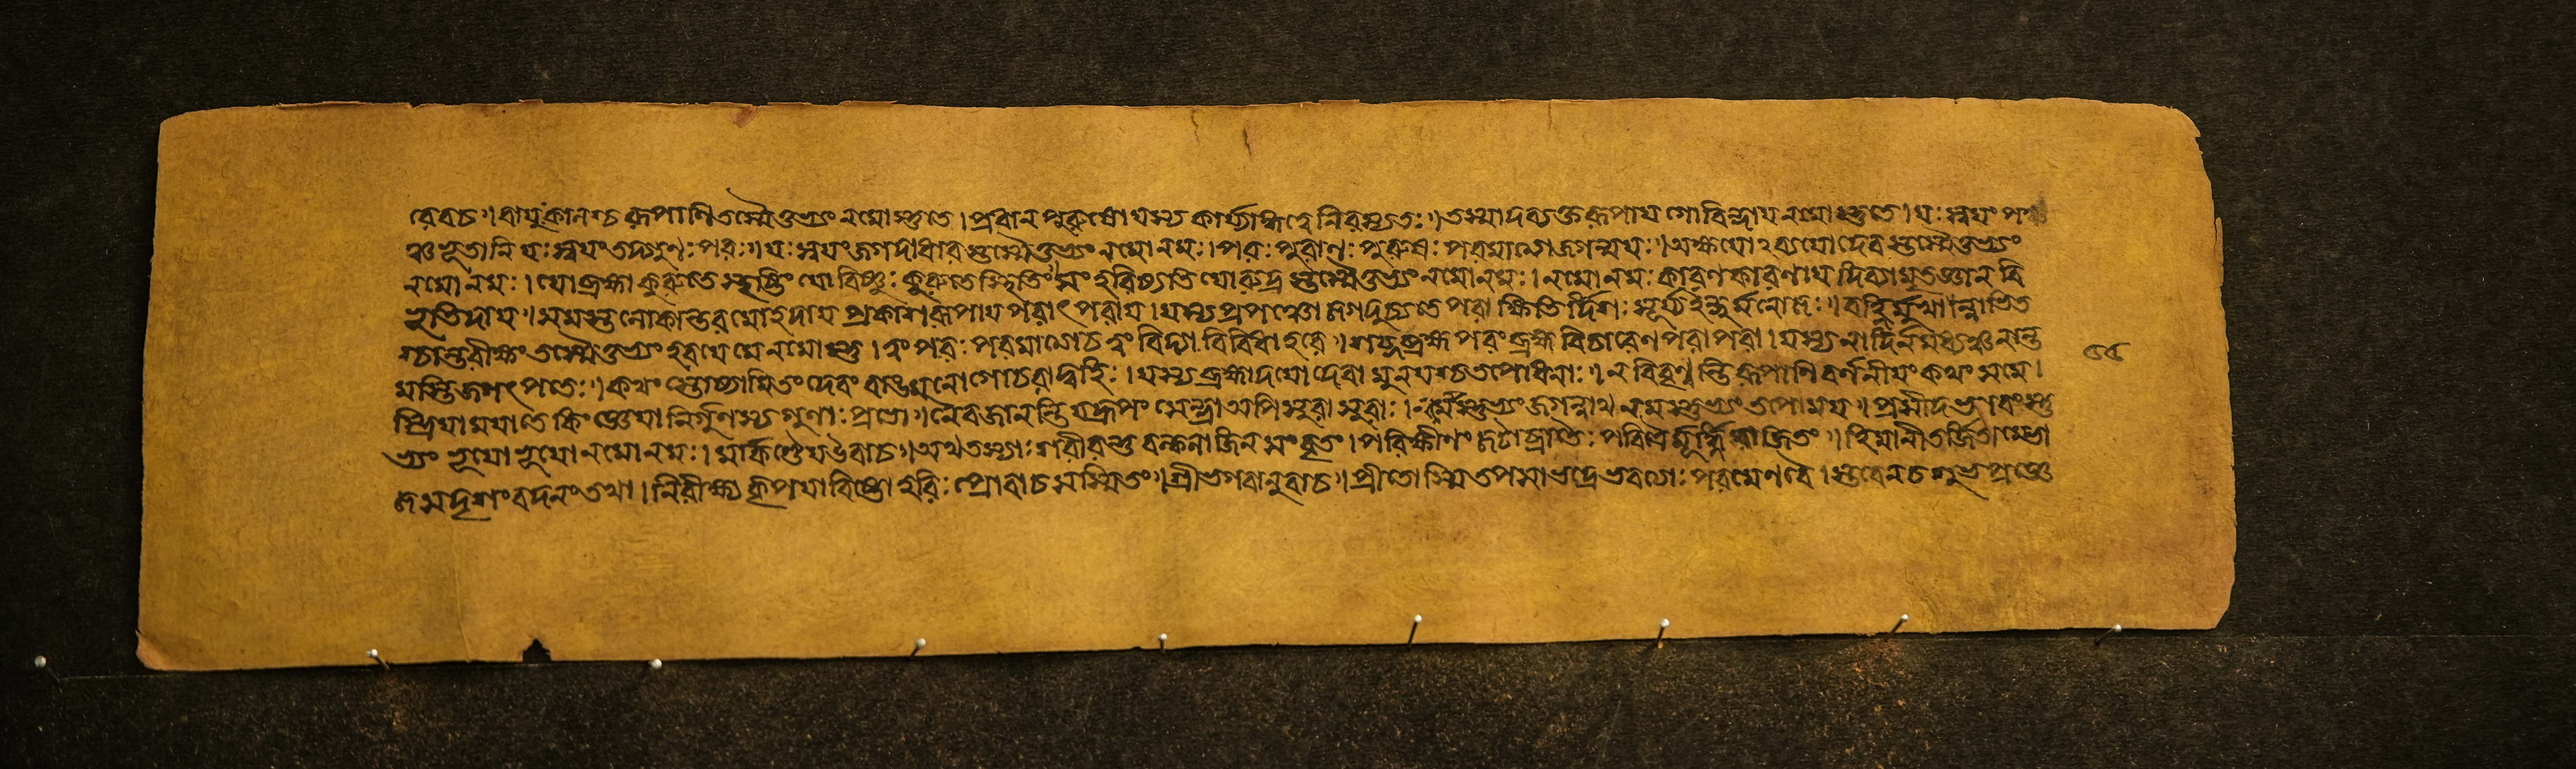 রেবচ৷৷বায়ুঃকালশ্চরূপাণিতস্মৈতুভ্যংনমোস্তুতে৷প্রধানপুরুষৌযস্যকার্য্যাঙ্গিনেনিবস্যতঃ৷৷তস্মাদব্যক্তরূপাযগোবিন্দাযনমোস্তুতে৷যঃস্বযংপঞ্চ
ঞ্চভূতানিযঃস্বযংতদ্গুণঃপরঃ৷৷যঃস্বযংজগদাধারস্তস্মৈতুভ্যংনমোনমঃ৷পরঃপুরাণঃপুরুষঃপরমাত্মাজগন্মযঃ৷৷অক্ষযোঽব্যযোদেবস্তস্মৈতুভ্যং
নমোনমঃ৷যোব্রহ্মাকুরুতেসৃষ্টিংযোবিষ্ণুঃকুরুতেস্থিতিং৷৷সংহরিষ্যতিযোরুদ্রস্তস্মৈতুভ্যংনমোনমঃ৷নমোনমঃকারণকারণাযদিব্যামৃতজ্ঞানবি
ভূতিদায৷৷সমস্তলোকান্তরমোহদাযপ্রকাশরূপাযপরাৎপরায৷যস্যপ্রপঞ্চোজগদুচ্যতেপরাক্ষিতির্দিশঃসূর্য্যইন্দুর্মনোজঃ৷৷বহ্নির্মুখান্নাভিত
শ্চান্তরীক্ষংতস্মৈতুভ্যংহরযেমেনমোস্তু৷ত্বংপরঃপরমাত্মাচত্বংবিদ্যাবিবিধাহরে৷৷শব্দব্রহ্মপরংব্রহ্মবিচারেণপরাপরা৷যস্যনাদির্নমধ্যঞ্চনান্ত
মস্তিজগৎপতে৷৷কথংস্তোষ্যামিতংদেবংবাঙ্মনোগোচরাদ্বহিঃ৷যস্যব্রহ্মাদযোদেবামুনযশ্চতপোধনাঃ৷৷নবিবৃণ্বন্তিরূপাণিবর্ণনীযংকথংসমে৷
স্ত্রিযামযাতেকিংজ্ঞেযানির্গুণস্যগুণাঃপ্রভো৷৷নৈবজানন্তিযদ্রূপংসেন্দ্রাঅপিসুরাসুরাঃ৷নমস্তুভ্যংজগন্নাথনমস্তুভ্যংতপোময৷৷প্রসীদভগবংস্তু
ভ্যংভূযোভূযোনমোনমঃ৷মার্কণ্ডেযউবাচ৷৷অথতস্যাঃশরীরন্তুবল্কলাজিনসংবৃতং৷পরিক্ষীণংজটাব্রাতৈঃপবিত্রৈর্মূর্দ্ধ্নিরাজিতং৷৷হিমানীতর্জিতাম্ভো
জসদৃশংবদনংতথা৷নিরীক্ষ্যকৃপযাবিষ্টোহরিঃপ্রোবাচসস্মিতং৷৷শ্রীভগবানুবাচ৷৷প্রীতোস্মিতপসাভদ্রেভবত্যাঃপরমেণবৈ৷স্তবেনচশুভপ্রজ্ঞে